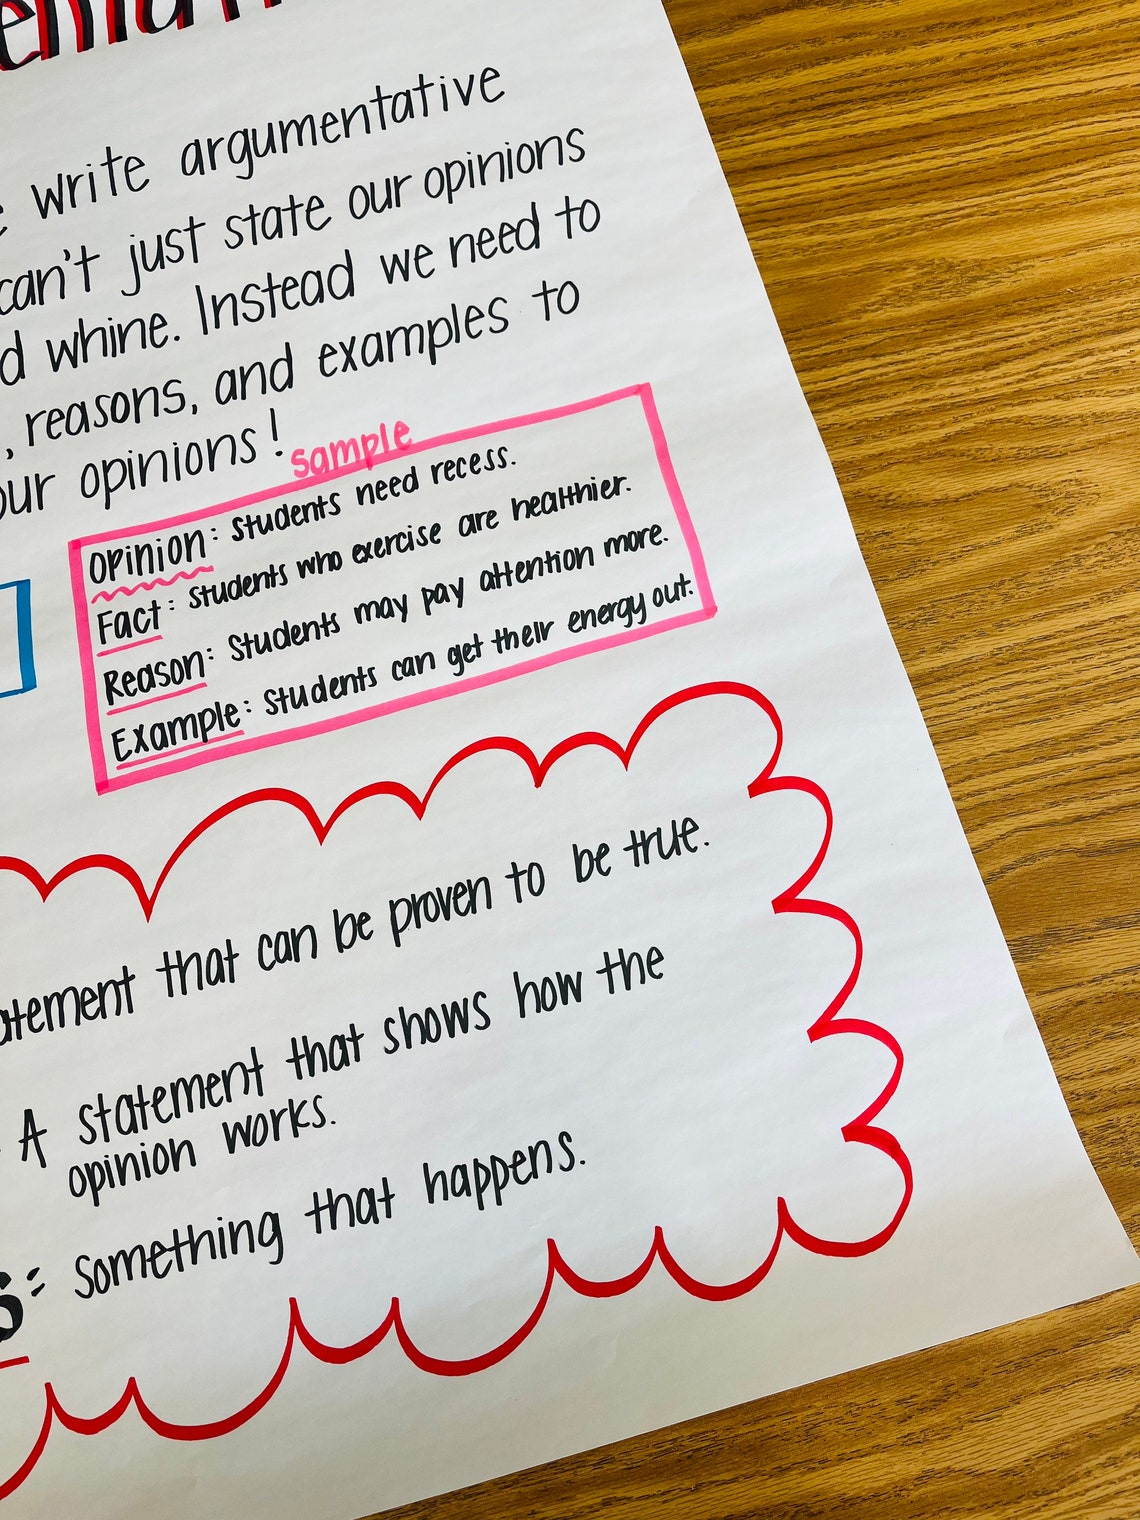 write argumentative
can't just state our opinions
whine. Instead we need to
, reasons, and examples to
our opinions!
sample
Opinion: Students need recess.
Fact: Students who exercise are healthier.
Reason: Students may pay attention more.
Example: Students can get their energy out.
that can be proven to be true.
A statement that shows how the
opinion works.
s: Something that happens.